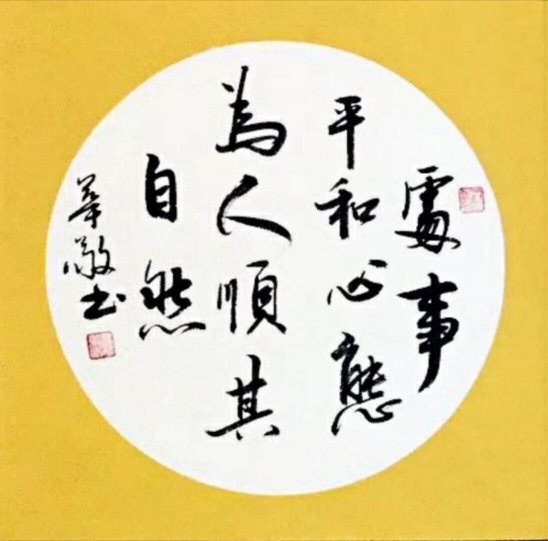 處事
平和心態
為人順其
自然
華敬书